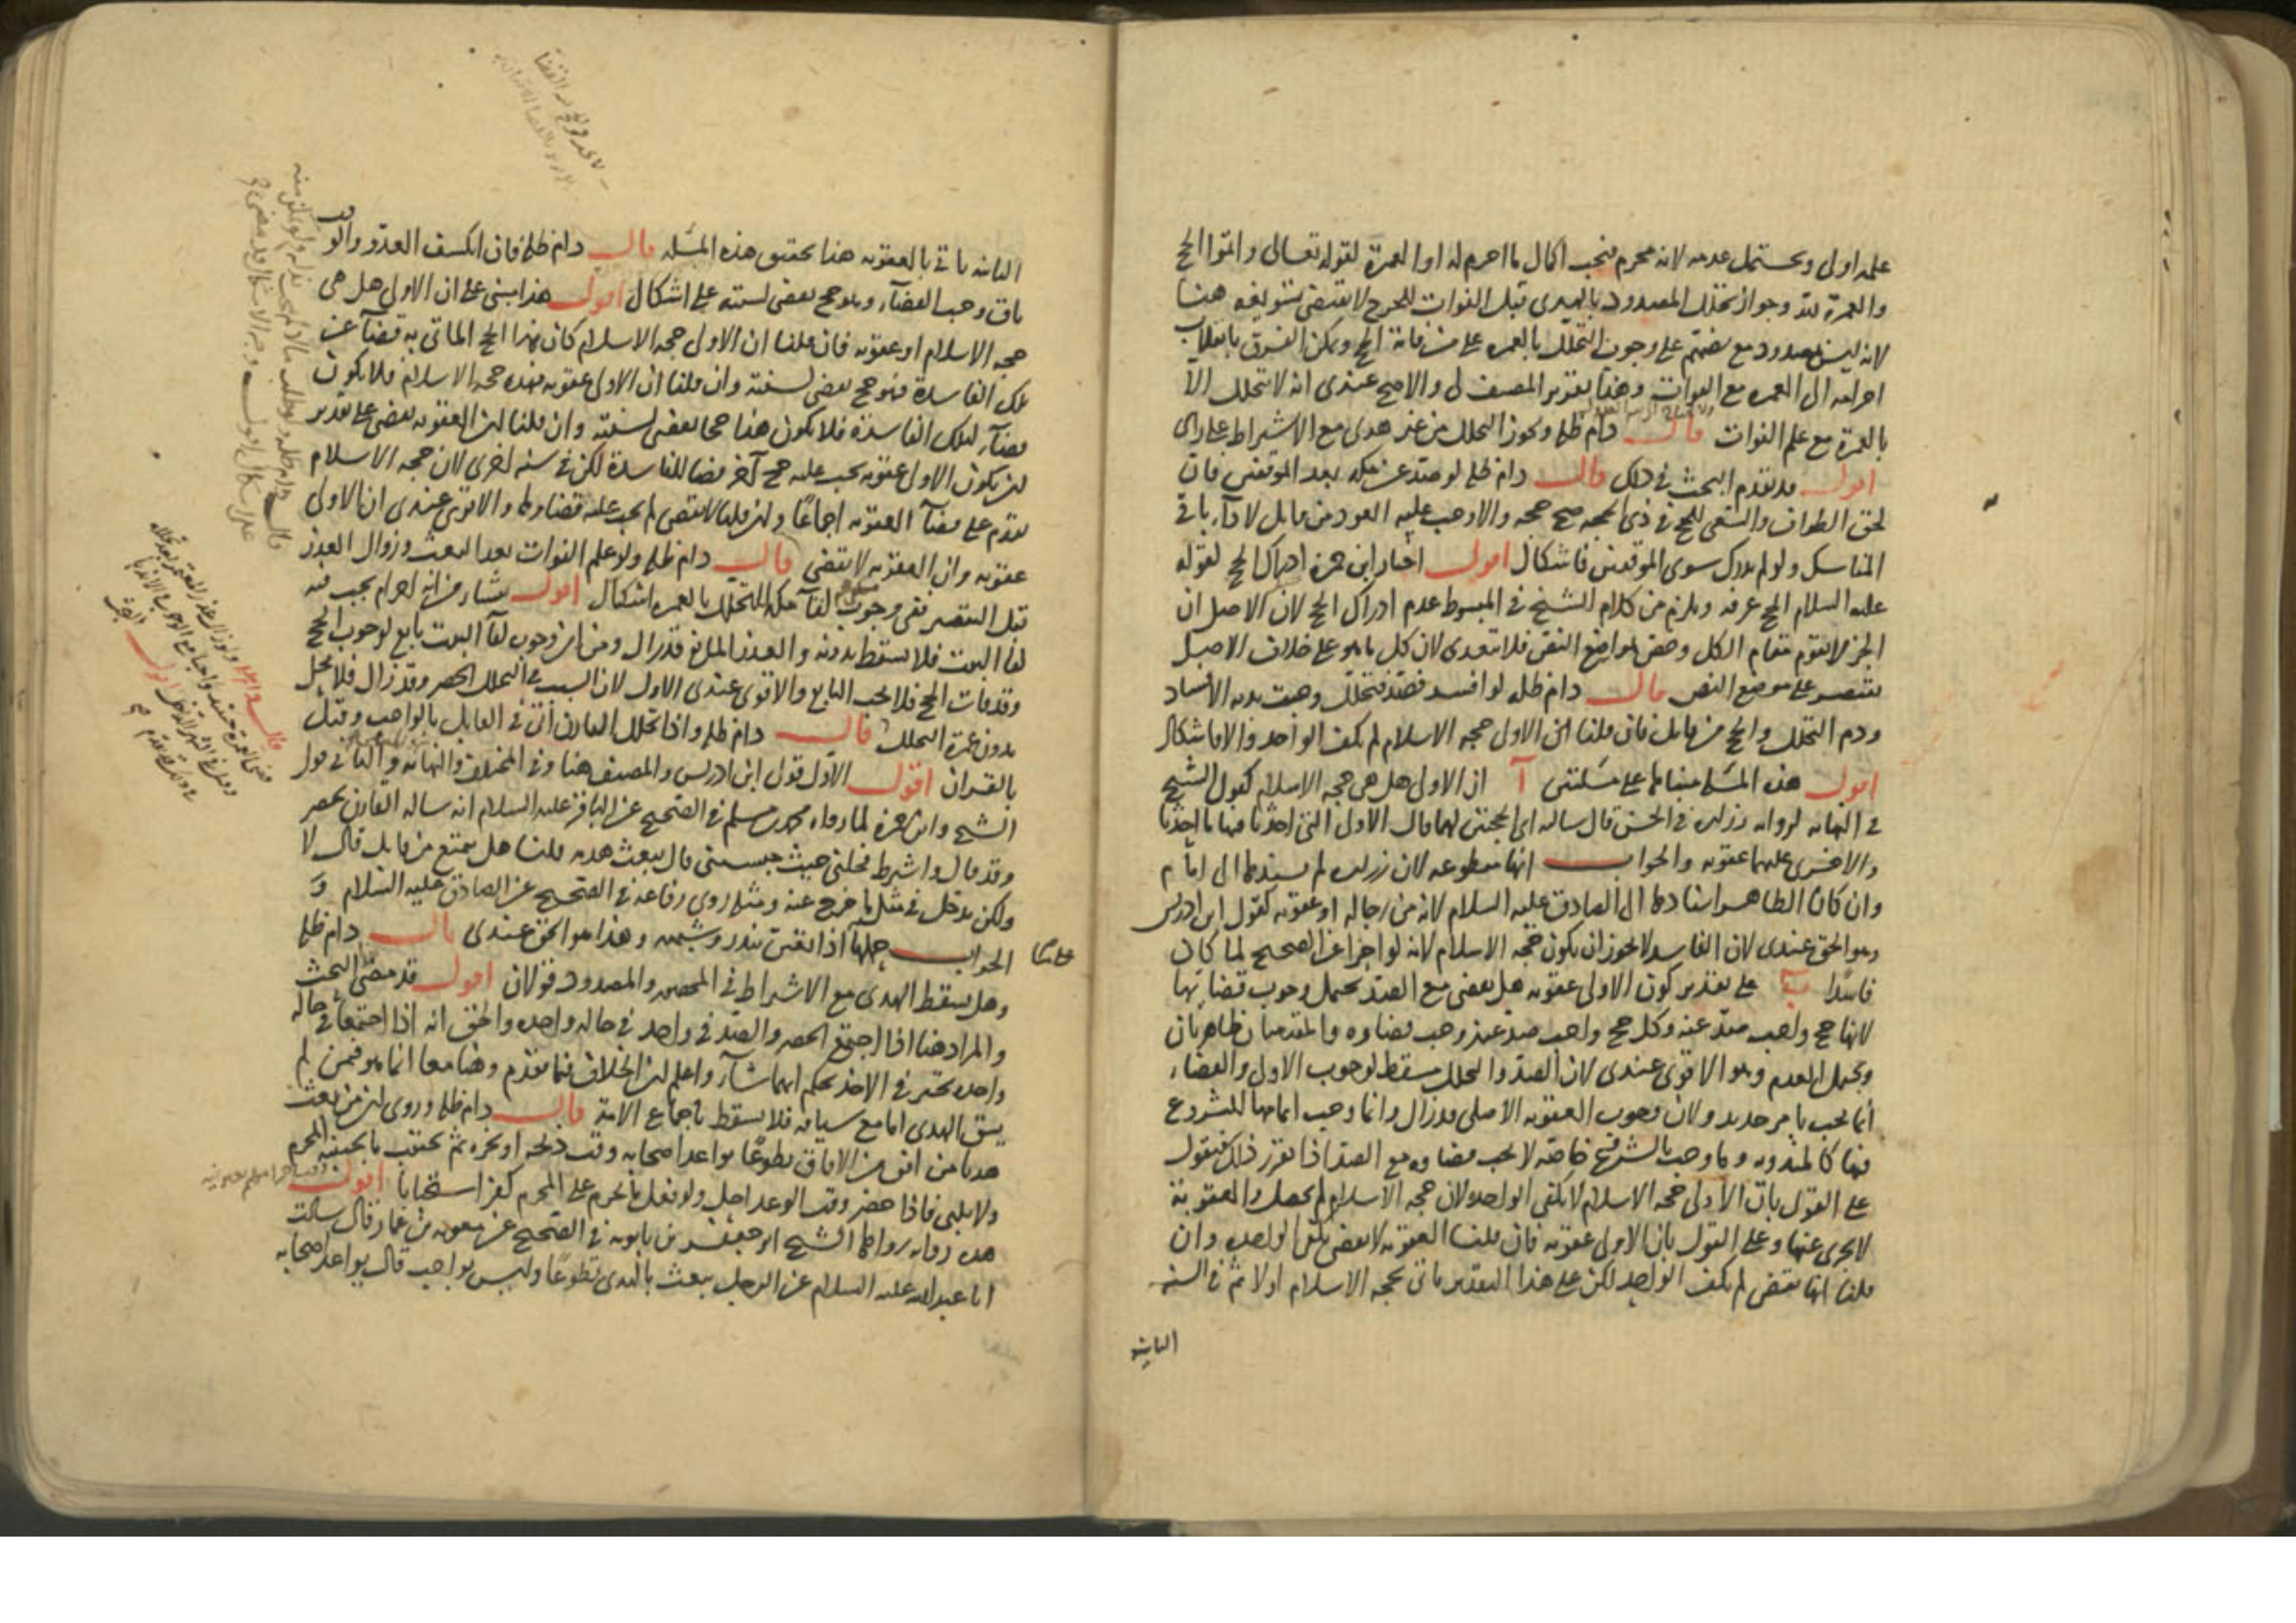 عليه اولى ويحتمل عدمه لانه محرم فيجب اكمال ما احرم له او العمرة لقوله تعالى واتموا الحج
والعمرة لله وجواز تحلل المصدود بالهدى قبل الفوات للحرج لا يقتضى تسويغه هنا
لانه ليس بمصدود مع نصهم على وجوب التحلل بالعمره على من فاته الحج ويمكن الفرق بانقلاب
احرامه الى العمره مع الفوات وهذا تقرير المصنف لى والاصح عندى انه لا يتحلل الا
بالعمرة مع علم الفوات قال دام ظله ويجوز التحلل من غير هدى مع الاشتراط على راى
اقول قد تقدم البحث فى ذلك قال دام ظله لو صد عن مكه بعد الموقفين فان
لحق الطواف والسعى للحج فى ذى الحجه صح حجه والا وجب عليه العود من قابل لاداء باقى
المناسك ولو لم يدرك سوى الموقفين فاشكال اقول اختار ابن حمزة ادراك الحج لقوله
عليه السلام الحج عرفه ويلزم من كلام الشيخ فى المبسوط عدم ادراك الحج لان الاصل ان
الجزء لا يقوم مقام الكل وخص مواضع النص فلا يتعدى لان كل ما هو على خلاف الاصل
يقتصر على موضع النص قال دام ظله لو افسد فصد فتحلل وجبت بدنه الافساد
ودم التحلل والحج من قابل فان قلنا ان الاولى حجه الاسلام لم يكف الواحد والا فاشكال
اقول هذه المسئله مبناها على مسئلتين آ ان الاولى هل هى حجه الاسلام كقول الشيخ
فى النهايه لروايه زراره فى الحسن قال سالته اى الحجتين لهما قال الاولى التى احدثا فيها ما احدثا
والاخرى عليهما عقوبه والجواب انها مقطوعه لان زراره لم يسندها الى امام
وان كان الظاهر اسنادها الى الصادق عليه السلام لانه من رجاله او عقوبه كقول ابن ادريس
وهو الحق عندى لان الفاسد لا يجوز ان يكون حجه الاسلام لانه لو اجزا عن الصحيح لما كان
فاسدا ب على تقدير كون الاولى عقوبه هل يقضى مع الصد يحتمل وجوب قضائها
لانها حج واجب صد عنه وكل حج واجب صد عنه وجب قضاوه والمقدمتان ظاهرتان
ويحتمل العدم وهو الاقوى عندى لان الصد والتحلل مسقط لوجوب الاول والقضاء
انما يجب بامر جديد ولان وجوب العقوبه الاصلى قد زال وانما وجب اتمامها للشروع
فيها كالمندوبه وما وجب بالشروع خاصه لا يجب قضاوه مع الصد اذا تقرر ذلك فنقول
على القول بان الاولى حجه الاسلام لا يكفى الواحد لان حجه الاسلام لم تحصل والعقوبة
لا تجزى عنها وعلى القول بان الاولى عقوبه فان قلنا العقوبه لا تقضى يكفى الواحده وان
قلنا انها تقضى لم يكف الواحد لكن على هذا التقدير ياتى بحجه الاسلام اولا ثم فى السنه
الثانيه
الثانيه ياتى بالعقوبه هنا تحقيق هذه المسئله قال دام ظله فان انكشف العدو والوقت
باق وجب القضاء وهو حج يقضى لسنته على اشكال اقول هذا يبنى على ان الاولى هل هى
حجه الاسلام او عقوبه فان قلنا ان الاولى حجه الاسلام كان هذا الحج الماتى به قضآ عن
تلك الفاسدة فهو حج يقضى لسنته وان قلنا ان الاولى عقوبه فهذه حجه الاسلام فلا يكون
قضآء لتلك الفاسدة فلا يكون هذا حجا يقضى لسنته وان قلنا ان العقوبه تقضى على تقدير
ان يكون الاولى عقوبه يجب عليه حج آخر قضا للفاسدة لكن فى سنه اخرى لان حجه الاسلام
تقدم على قضآ العقوبه اجماعًا وان قلنا لا تقضى لم يجب عليه قضاوها والاقوى عندى ان الاولى
عقوبه وان العقوبه لا تقضى قال دام ظله ولو علم الفوات بعد البعث وزوال العذر
قبل التقصير ففى وجوب لقآ مكه للتحلل بالعمره اشكال اقول ينشا من انه احرام يجب فيه
لقآ البيت فلا يسقط بدونه والعذر المانع قد زال ومن ان وجوب لقآ البيت تابع لوجوب الحج
وقد فات الحج فلا يجب التابع والاقوى عندى الاول لان السبب فى التحلل الحصر وقد زال فلا يحل
بدون عمرة التحلل قال دام ظله واذا تحلل القارن اتى فى القابل بالواجب وقيل
بالقران اقول الاول قول ابن ادريس والمصنف هنا وفى المختلف والنهايه والثانى قول
الشيخ وابن حمزة لما رواه محمد بن مسلم فى الصحيح عن الباقر عليه السلام انه ساله القارن يحصر
وقد قال واشترط فحلنى حيث حبستنى قال يبعث بهديه قلنا هل يتمتع من قابل قال لا
ولكن يدخل فى مثل ما خرج عنه ومثله روى رفاعه فى الصحيح عن الصادق عليه السلام و
الجواب حملها اذا تعين بنذر وشبهه وهذا هو الحق عندى قال دام ظله
وهل يسقط الهدى مع الاشتراط فى المحصر والمصدود قولان اقول قد مضى البحث
والمراد هنا اذا اجتمع الحصر والصد فى واحد فى حاله واحده والحق انه اذا اجتمعا فى حاله
واحده تخير فى الاخذ بحكم ايهما شآء واعلم ان الخلاف فيما تقدم وهنا معا انما هو فيمن لم
يسق الهدى اما مع سياقه فلا يسقط باجماع الامة قال دام ظله وروى ان من بعث
هديا من افق من الافاق تطوعًا يواعد اصحابه وقت ذبحه او نحره ثم يجتنب ما يجتنبه المحرم
ولا يلبى فاذا حضر وقت الوعد احل ولو فعل ما يحرم على المحرم كفر استحبابا اقول
هذه روايه رواها الشيخ ابو جعفر بن بابويه فى الصحيح عن معويه بن عمار قال سالت
ابا عبد الله عليه السلام عن الرجل يبعث بالهدى تطوعًا وليس بواجب قال يواعد اصحابه